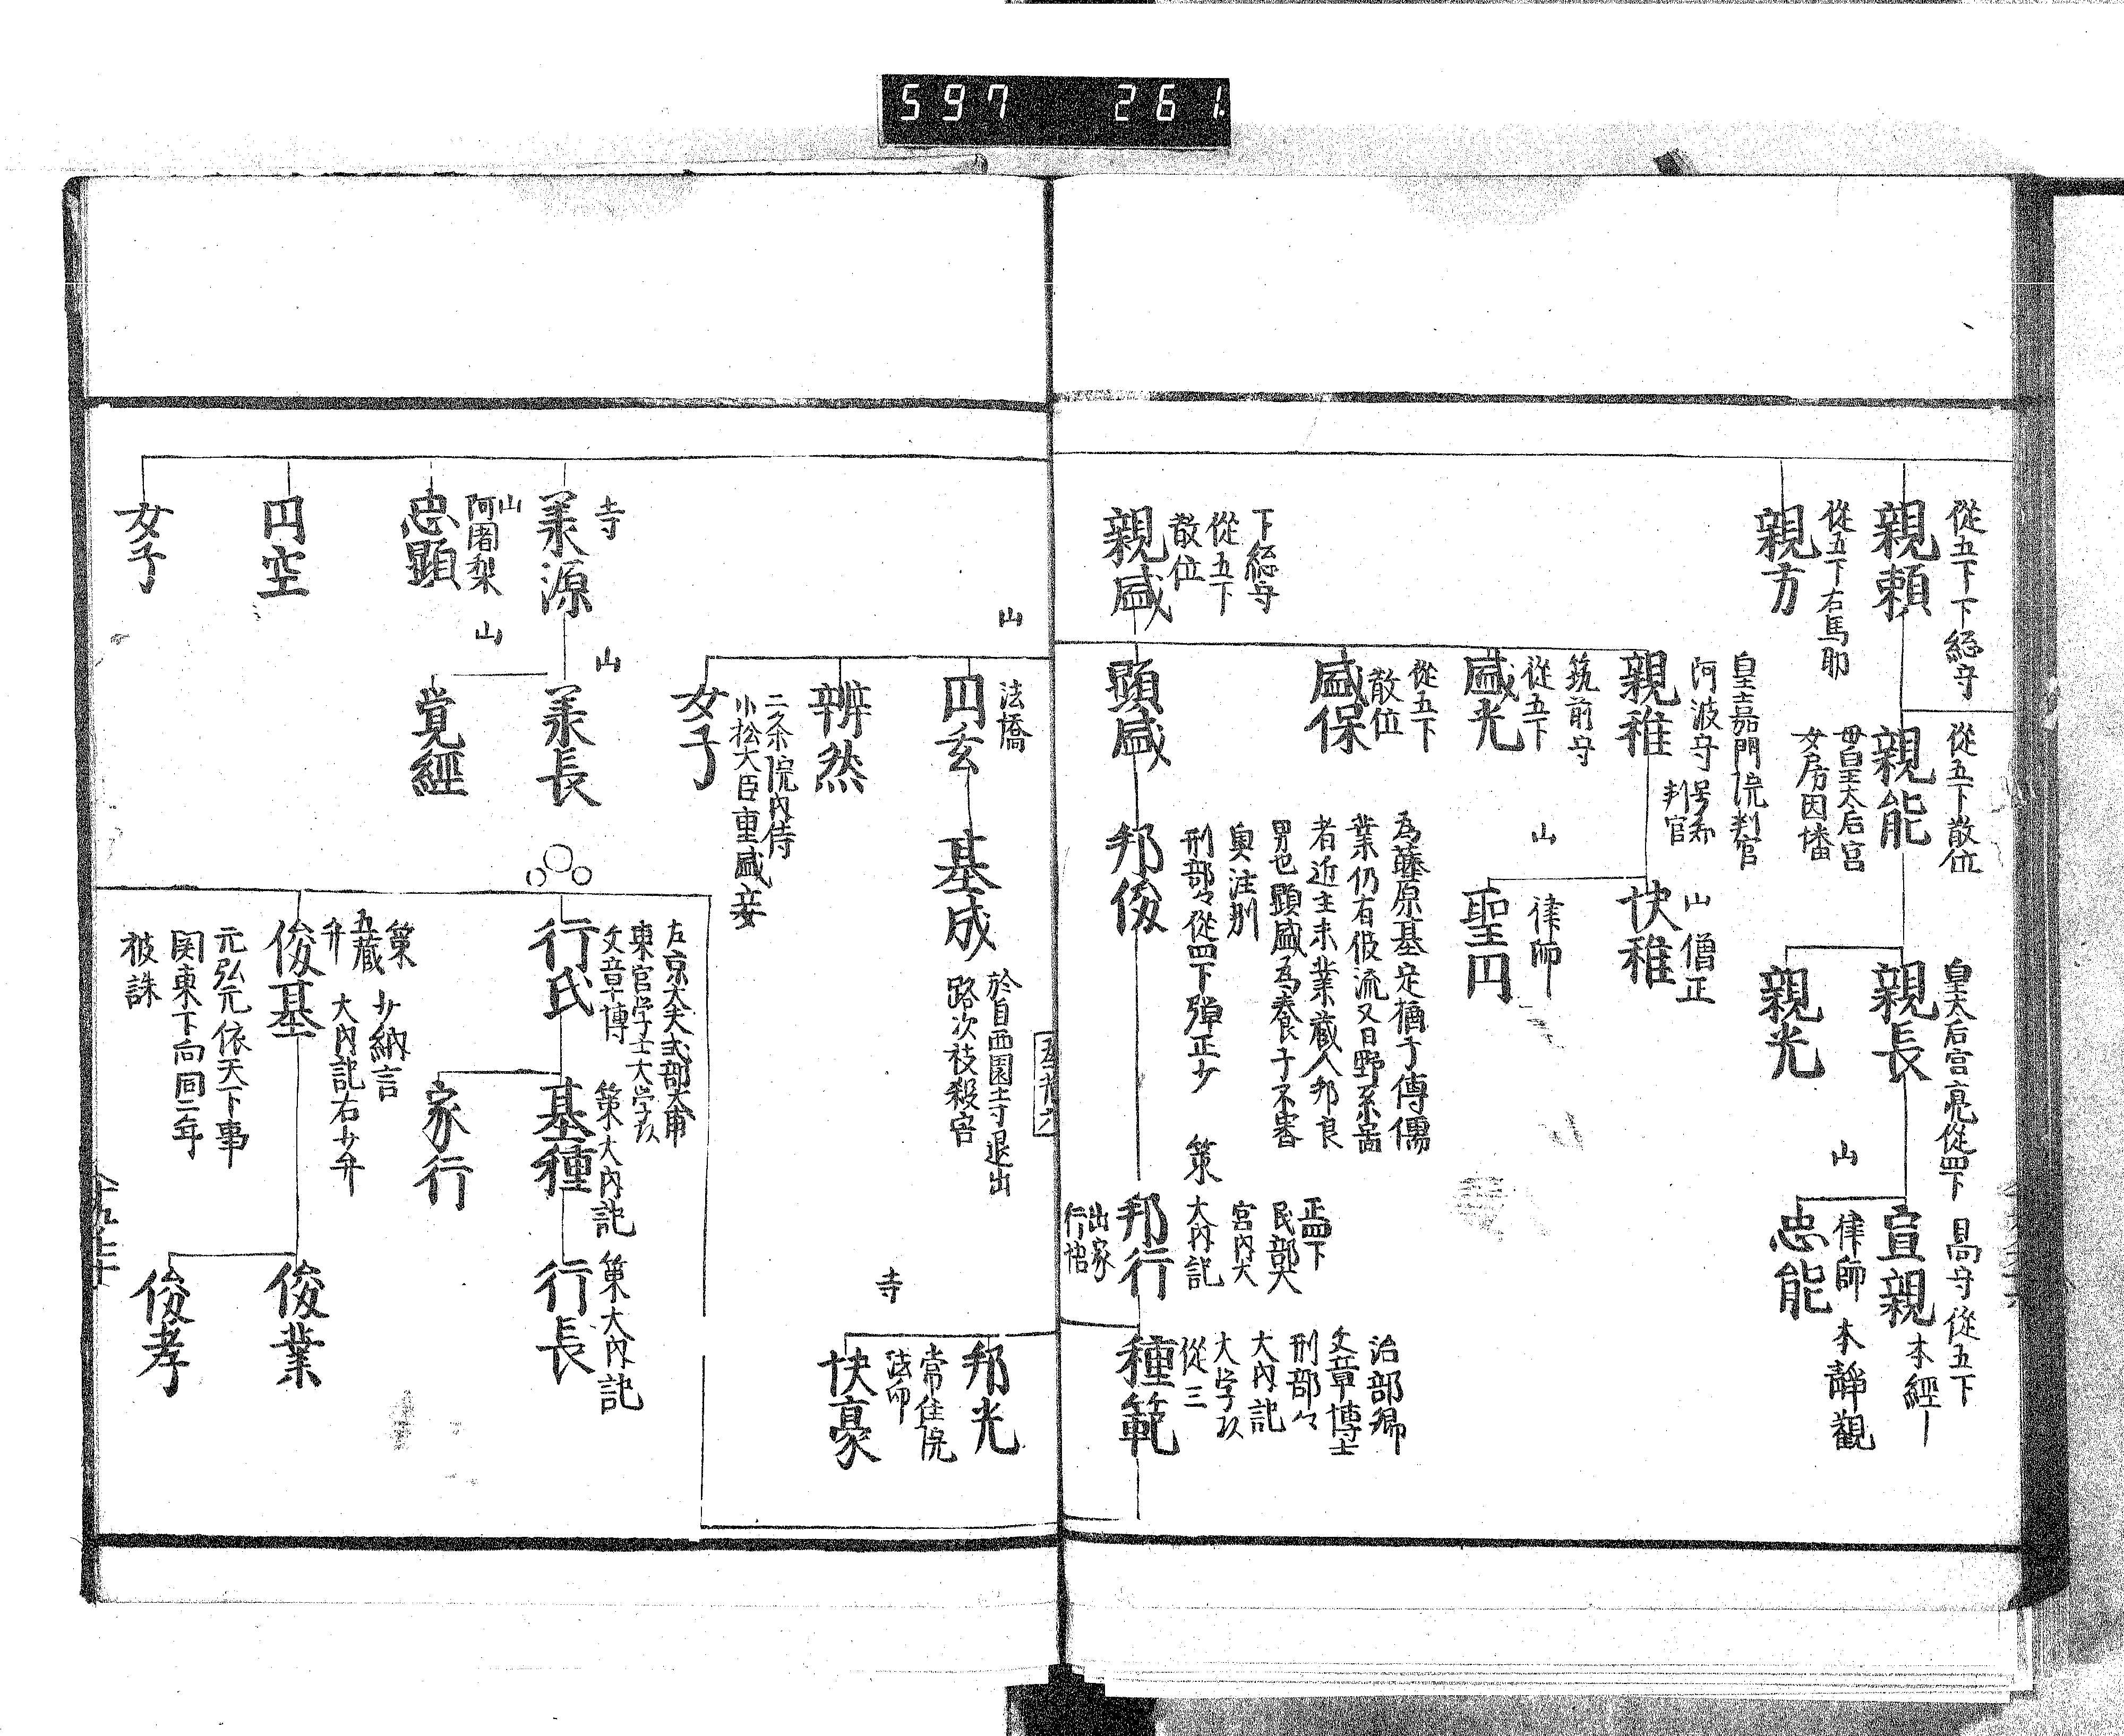 597 261
從五下下総守
親頼
從五下右馬助
親方
從五下散位
親能
母皇太后宮
女房因幡
皇太后宮亮從四下
親長
親光
山
昌守從五下
宣親
本經
律師
本静觀
忠能
皇嘉門院判官
阿波守
判官
親稚
山僧正
快稚
筑前守
從五下
盛光
山
律師
聖円
從五下
散位
盛保
下総守
從五下
散位
親盛
顕盛
為藤原基定猶子傳儒
業仍有彼流又日野系圖
者近主未業蔵人邦良
男也顕盛為養子不審
奥注別
刑部々從四下弾正少
邦俊
策
正四下
民部大
宮内大
大内記
邦行
出家
治部卿
文章博士
刑部々
大内記
大学
從三
種範
山
法橋
円玄
辨然
二条院内侍
小松大臣重盛妾
女子
基成
於自西園寺退出
路次被殺害
邦光
寺
常住院
法印
快豪
寺
兼源
山
阿闍梨
忠顕
円空
女子
山
兼長
山
覚經
左京大夫式部大甫
東宮学士大学
文章博
行氏
策大内記
基種
家行
策大内記
行長
策
五蔵
弁
少納言
大内記右少弁
俊基
元弘元依天下事
関東下向同二年
被誅
俊業
俊孝